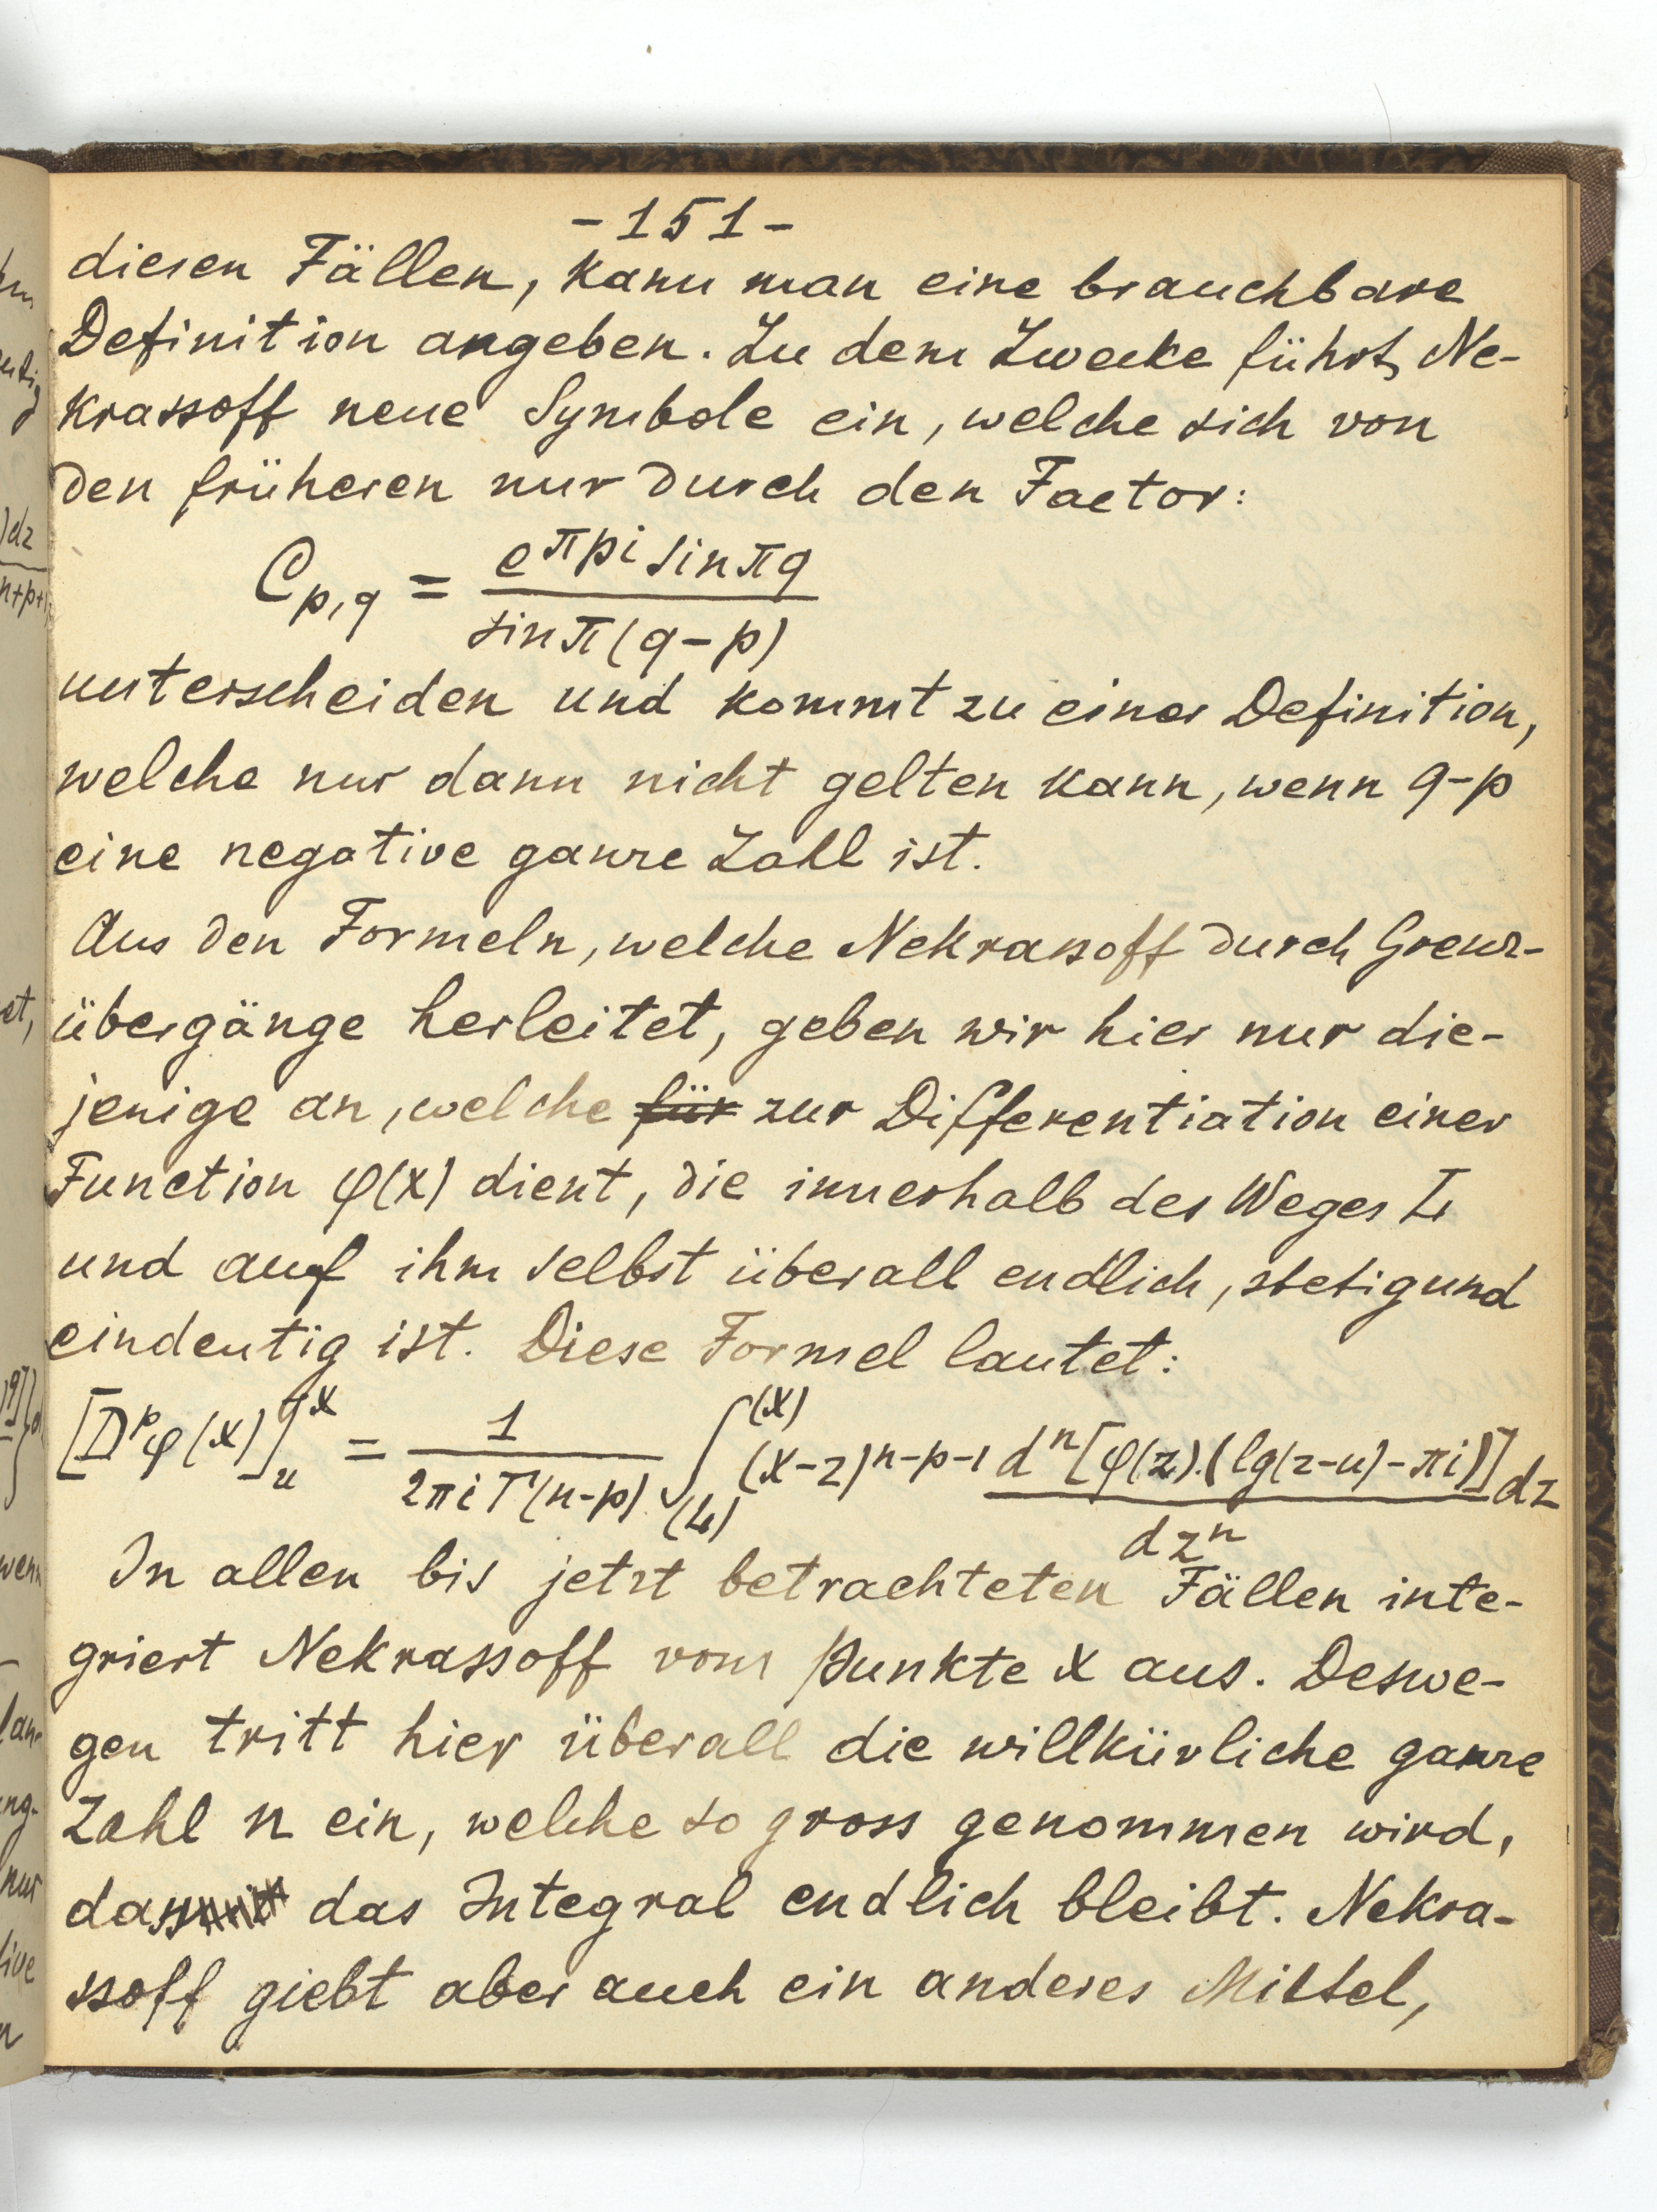 -151-
diesen Fällen, kann man eine brauchbare
Definition angeben. Zu dem Zwecke führt Ne-
krassoff neue Symbole ein, welche sich von
den früheren nur durch den Factor:
C_{p,q} = \frac{e^{πpi} sin πq}{sin π(q-p)}
unterscheiden und kommt zu einer Definition,
welche nur dann nicht gelten kann, wenn q-p
eine negative ganze Zahl ist.
Aus den Formeln, welche Nekrassoff durch Grenz-
übergänge herleitet, geben wir hier nur die-
jenige an, welche für zur Differentiation einer
Function φ(x) dient, die innerhalb des Weges L
und auf ihm selbst überall endlich, stetig und
eindeutig ist. Diese Formel lautet:
[D^p φ(x)]_u^x = \frac{1}{2πi Γ(n-p)} \int_{(L)}^{(x)} (x-z)^{n-p-1} \frac{d^n [φ(z).(lg(z-u)-πi)]}{dz^n} dz
In allen bis jetzt betrachteten Fällen inte-
griert Nekrassoff vom Punkte x aus. Deswe-
gen tritt hier überall die willkürliche ganze
Zahl n ein, welche so gross genommen wird,
dass das Integral endlich bleibt. Nekra-
ssoff giebt aber auch ein anderes Mittel,